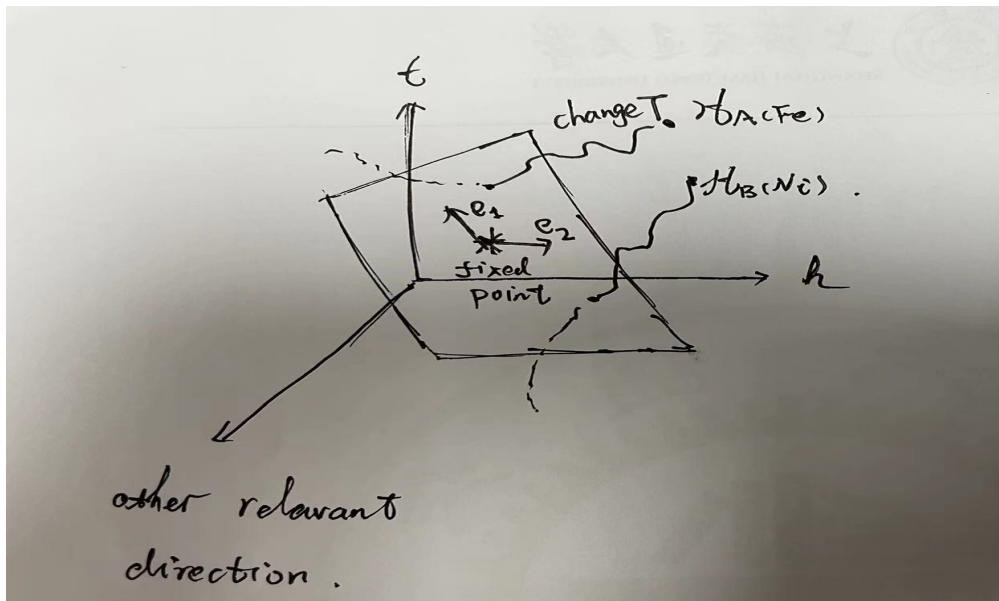 t
change T. H_A(Fe)
H_B(Ni).
e1
e2
fixed
point
h
other relavant
direction.